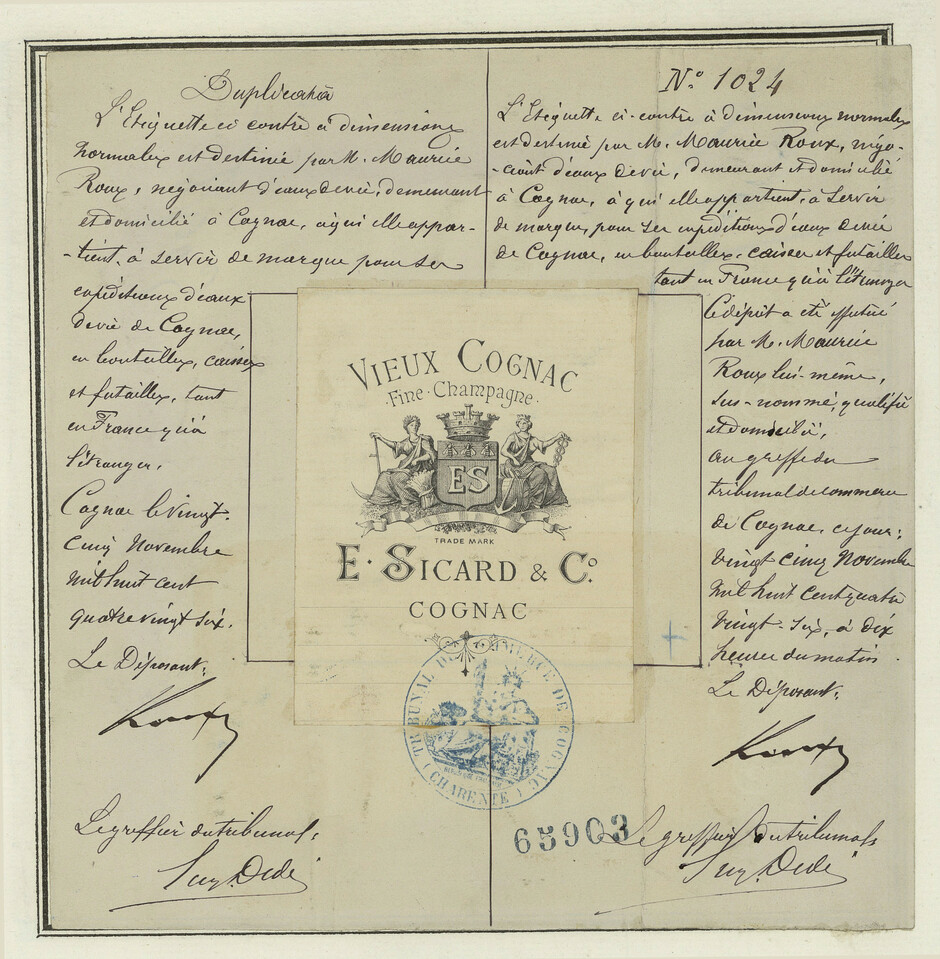 Duplicata
L'Etiquette ci contre à dimensions
normales est destinée par M. Maurice
Roux, négociant d'eaux de vie, demeurant
et domicilié à Cognac, à qui elle appar-
-tient, à servir de marque pour ses
expéditions d'eaux
de vie de Cognac,
en bouteilles, caisses
et futailles, tant
en France qu'à
l'étranger.
Cognac le vingt.
cinq Novembre
mil huit cent
quatre vingt six.
Le Déposant:
Roux
Le greffier du tribunal:
N° 1024
L'Etiquette ci-contre à dimensions normales
est destinée par M. Maurice Roux, négo-
-ciant d'eaux de vie, demeurant et domicilié
à Cognac, à qui elle appartient, à servir
de marque, pour ses expéditions d'eaux de vie
de Cognac, en bouteilles, caisses et futailles
tant en France qu'à l'étranger
Le dépôt a été effectué
par M. Maurice
Roux lui-même,
sus-nommé, qualifié
et domicilié,
au greffe du
tribunal de commerce
de Cognac, ce jour:
vingt cinq Novembre
mil huit cent quatre
vingt-six, à dix
heures du matin.
Le Déposant:
Roux
Le greffier du tribunal:
VIEUX COGNAC
·Fine·Champagne·
ES
TRADE MARK
E·SICARD & Co.
COGNAC
TRIBUNAL DE COMMERCE DE COGNAC
(CHARENTE)
65903